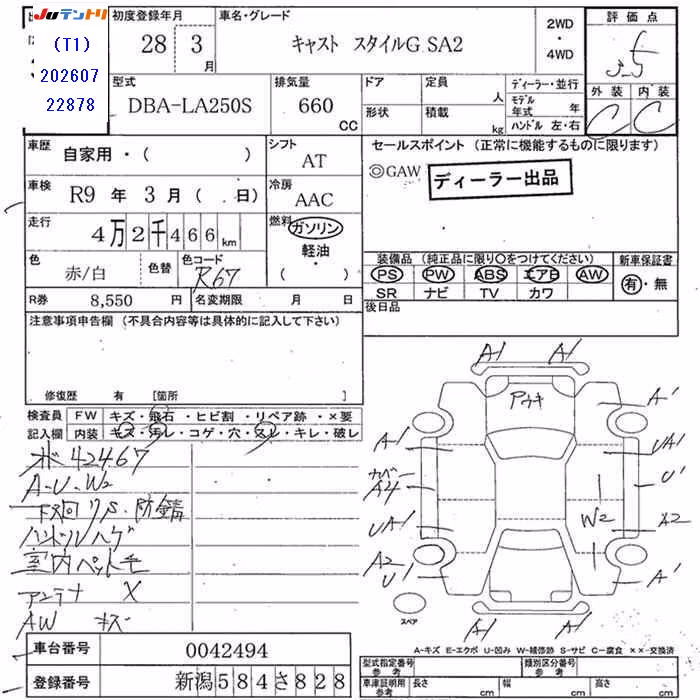 JUテントリ
(T1)
202607
22878
初度登録年月
28 3月
車名・グレード
キャスト スタイルG SA2
2WD
・
4WD
評価点
外装 内装
C C
型式
DBA-LA250S
排気量
660 CC
ドア
形状
定員 人
積載 kg
ディーラー・並行
モデル年式 年
ハンドル 左・右
車歴
自家用・( )
シフト
AT
車検
R9 年 3 月 ( . 日)
冷房
AAC
走行
4万2千466km
燃料
ガソリン
軽油
( ・ )
色
赤/白
色替
色コード
R67
R券 8,550 円
名変期限 月 日
セールスポイント (正常に機能するものに限ります)
◎GAW
ディーラー出品
装備品 (純正品に限り〇をつけてください)
PS PW ABS エアB AW
SR ナビ TV カワ
新車保証書
有・無
後日品
注意事項申告欄 (不具合内容等は具体的に記入して下さい)
修復歴 有 [箇所 ]
検査員記入欄
FW キズ・飛石・ヒビ割・リペア跡・×要
内装 キズ・汚レ・コゲ・穴・スレ・キレ・破レ
42467
A-U-W2
下回りS・防錆
ハンドルハゲ
室内ペット毛
アンテナ X
AW キズ
A1 A1
A1
A'
UA1
U'
カバー
A4
UA1
W2
A2
A2
U1
A'
A1 A1
スペア
A-キズ E-エクボ U-凹み W-補修跡 S-サビ C-腐食 ××-交換済
車台番号 0042494
登録番号 新潟584さ828
型式指定番号
参考
類別区分番号
参考
車庫証明用
参考
長さ cm
幅 cm
高さ cm